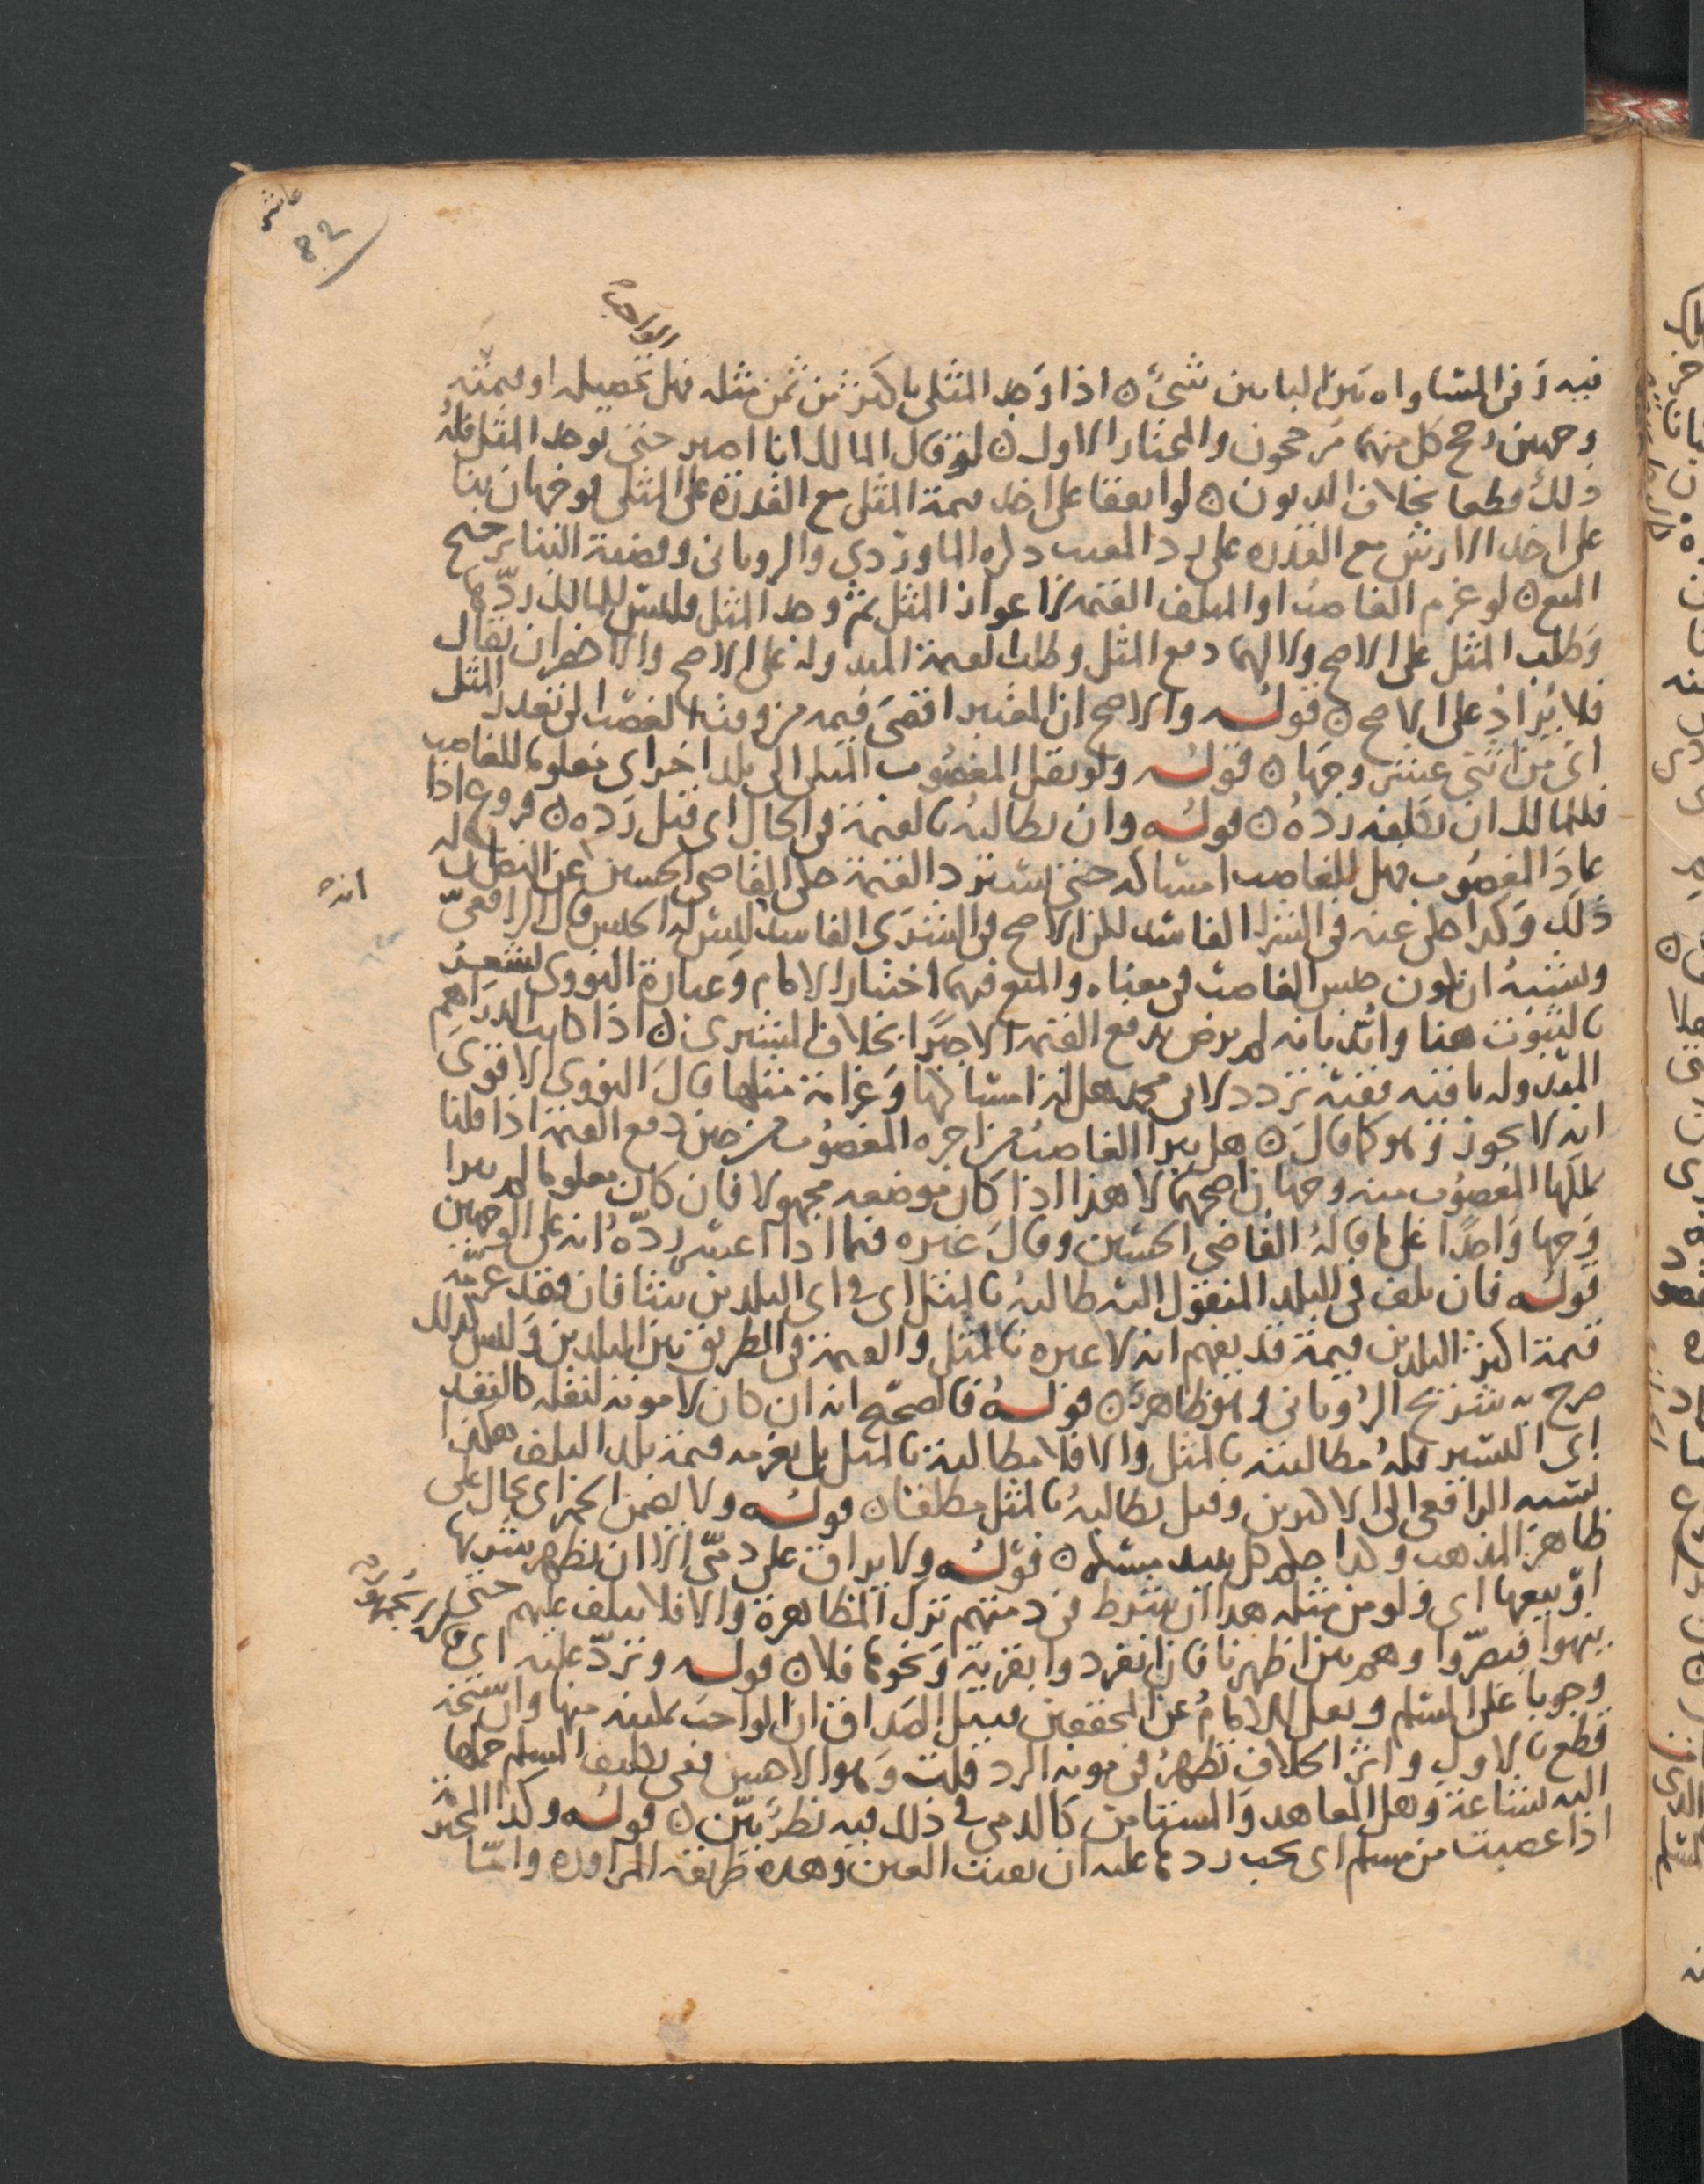 عاشر
82
الواجب
فيه وفي المساواه بين البابين شيء ن اذا وجد المثلي باكثر من ثمن مثله فهل تحصيله او قيمته
وجهين رجح كل منهما مرجحون والمختار الاول ن لو قال المالك انا اصبر حتى يوجد المثل فله
ذلك قطعا بخلاف الديون ن لو اتفقا على اخذ قيمة المثل مع القدرة على المثلي فوجهان بنا
على اخذ الارش مع القدره على رد المعيب ذكره الماوردي والروياني وقضية البنا ترجيح
المنع ن لو غرم الغاصب او المتلف القيمة لاعواز المثل ثم وجد المثل فليس للمالك ردها
وطلب المثل على الاصح ولا لهما دفع المثل وطلب القيمة المبدوله على الاصح والاخصر ان يقال
فلا تراد على الاصح ن قوله والاصح ان المعتبر اقصى قيمه من وقت الغصب الى تعذر المثل
اي من اثني عشر وجها ن قوله ولو نقل المغصوب المثلي الى بلد اخر اي معلوما للغاصب
فللمالك ان يكلفه رده ن قوله وان يطالبه بالقيمة في الحال اي قبل رده ن فروع اذا
عاد المغصوب فهل للغاصب امساكه حتى يسترد القيمة حكى القاضي الحسين عن النص ان له
انه
ذلك وكذا حكى عنه في الشرا الفاسد لكن الاصح في المشترى الفاسد ليس له الحبس قال الرافعي
ويشبه ان يكون حبس الغاصب في معناه والمنع فيهما اختيار الامام وعبارة النووي تشعر
بالثبوت هنا وايد بانه لم يرض بدفع القيمة الا جبرا بخلاف المشتري ن اذا كانت الدراهم
المبدوله باقيه بقيه تردد لابي محمد هل له امساكها وغرامة مثلها قال النووي الاقوى
انه لا يجوز وهو كما قال ن هل يبرا الغاصب من اجره المغصوب من حين دفع القيمة اذا قلنا
يملكها المغصوب منه وجهان اصحهما لا هذا اذا كان موضعه مجهولا فان كان معلوما لم يبرا
وجها واحدا على ما قاله القاضي الحسين وقال غيره فيما اذا اعتبر رده انه على الوجهين
قوله فان تلف في البلد المنقول اليه طالبه بالمثل اي في اي البلدين شا فان فقد غرمه
قيمة
قيمة اكثر البلدين قيمة قد يفهم انه لا عبره بالمثل والقيمة في الطريق بين البلدين وليس كذلك
صرح به شريح الروياني وهو ظاهر ن قوله فالصحيح انه ان كان لا مونه لنقله كالنقد
اي اليسير فله مطالبته بالمثل والا فلا مطالبة بالمثل بل يغرمه قيمة بلد التلف هكذا
نسبه الرافعي الى الاكثرين وقيل يطالبه بالمثل مطلقا ن قوله ولا تضمن الخمر اي بحال على
ظاهر المذهب وكذا حكم كل نبيذ مسكر ن قوله ولا يراق على ذمي الا ان يظهر شربها
او بيعها اي ولو من مثله هذا ان شرط في ذمتهم ترك المظاهرة والا فلا يتلف عليهم حتى
ينهوا فيصروا وهم بين اظهرنا فان انفردوا بقرية ونحوها فلا ن قوله وترد عليه اي
وجوبا على المسلم ونقل الامام عن المحققين قبيل الصداق ان الواجب تمكينه منها والشيخ
قطع بالاول واثر الخلاف يظهر في مونه الرد قلت وهو الاهين ففي تكليف المسلم حملها
اليه شناعة وهل المعاهد والمستامن كالذمي في ذلك فيه نظر بين ن قوله وكذا المحترمة
اذا غصبت من مسلم اي يجب ردها عليه ان بقيت العين وهذه طريقة المراوزه واما